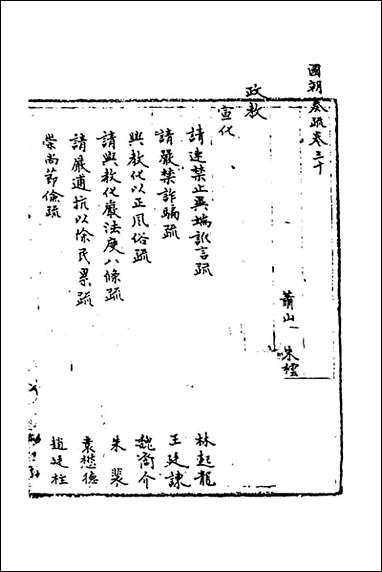 國朝奏疏卷三十
蕭山 朱橒
政教
宣化
請速禁止異端訛言疏 林起龍
請嚴禁詐騙疏 王廷諫
興教化以正風俗疏 魏裔介
請興教化嚴法度八條疏 朱裴
請嚴逋抗以除民累疏 袁懋德
崇尚節儉疏 趙廷柱